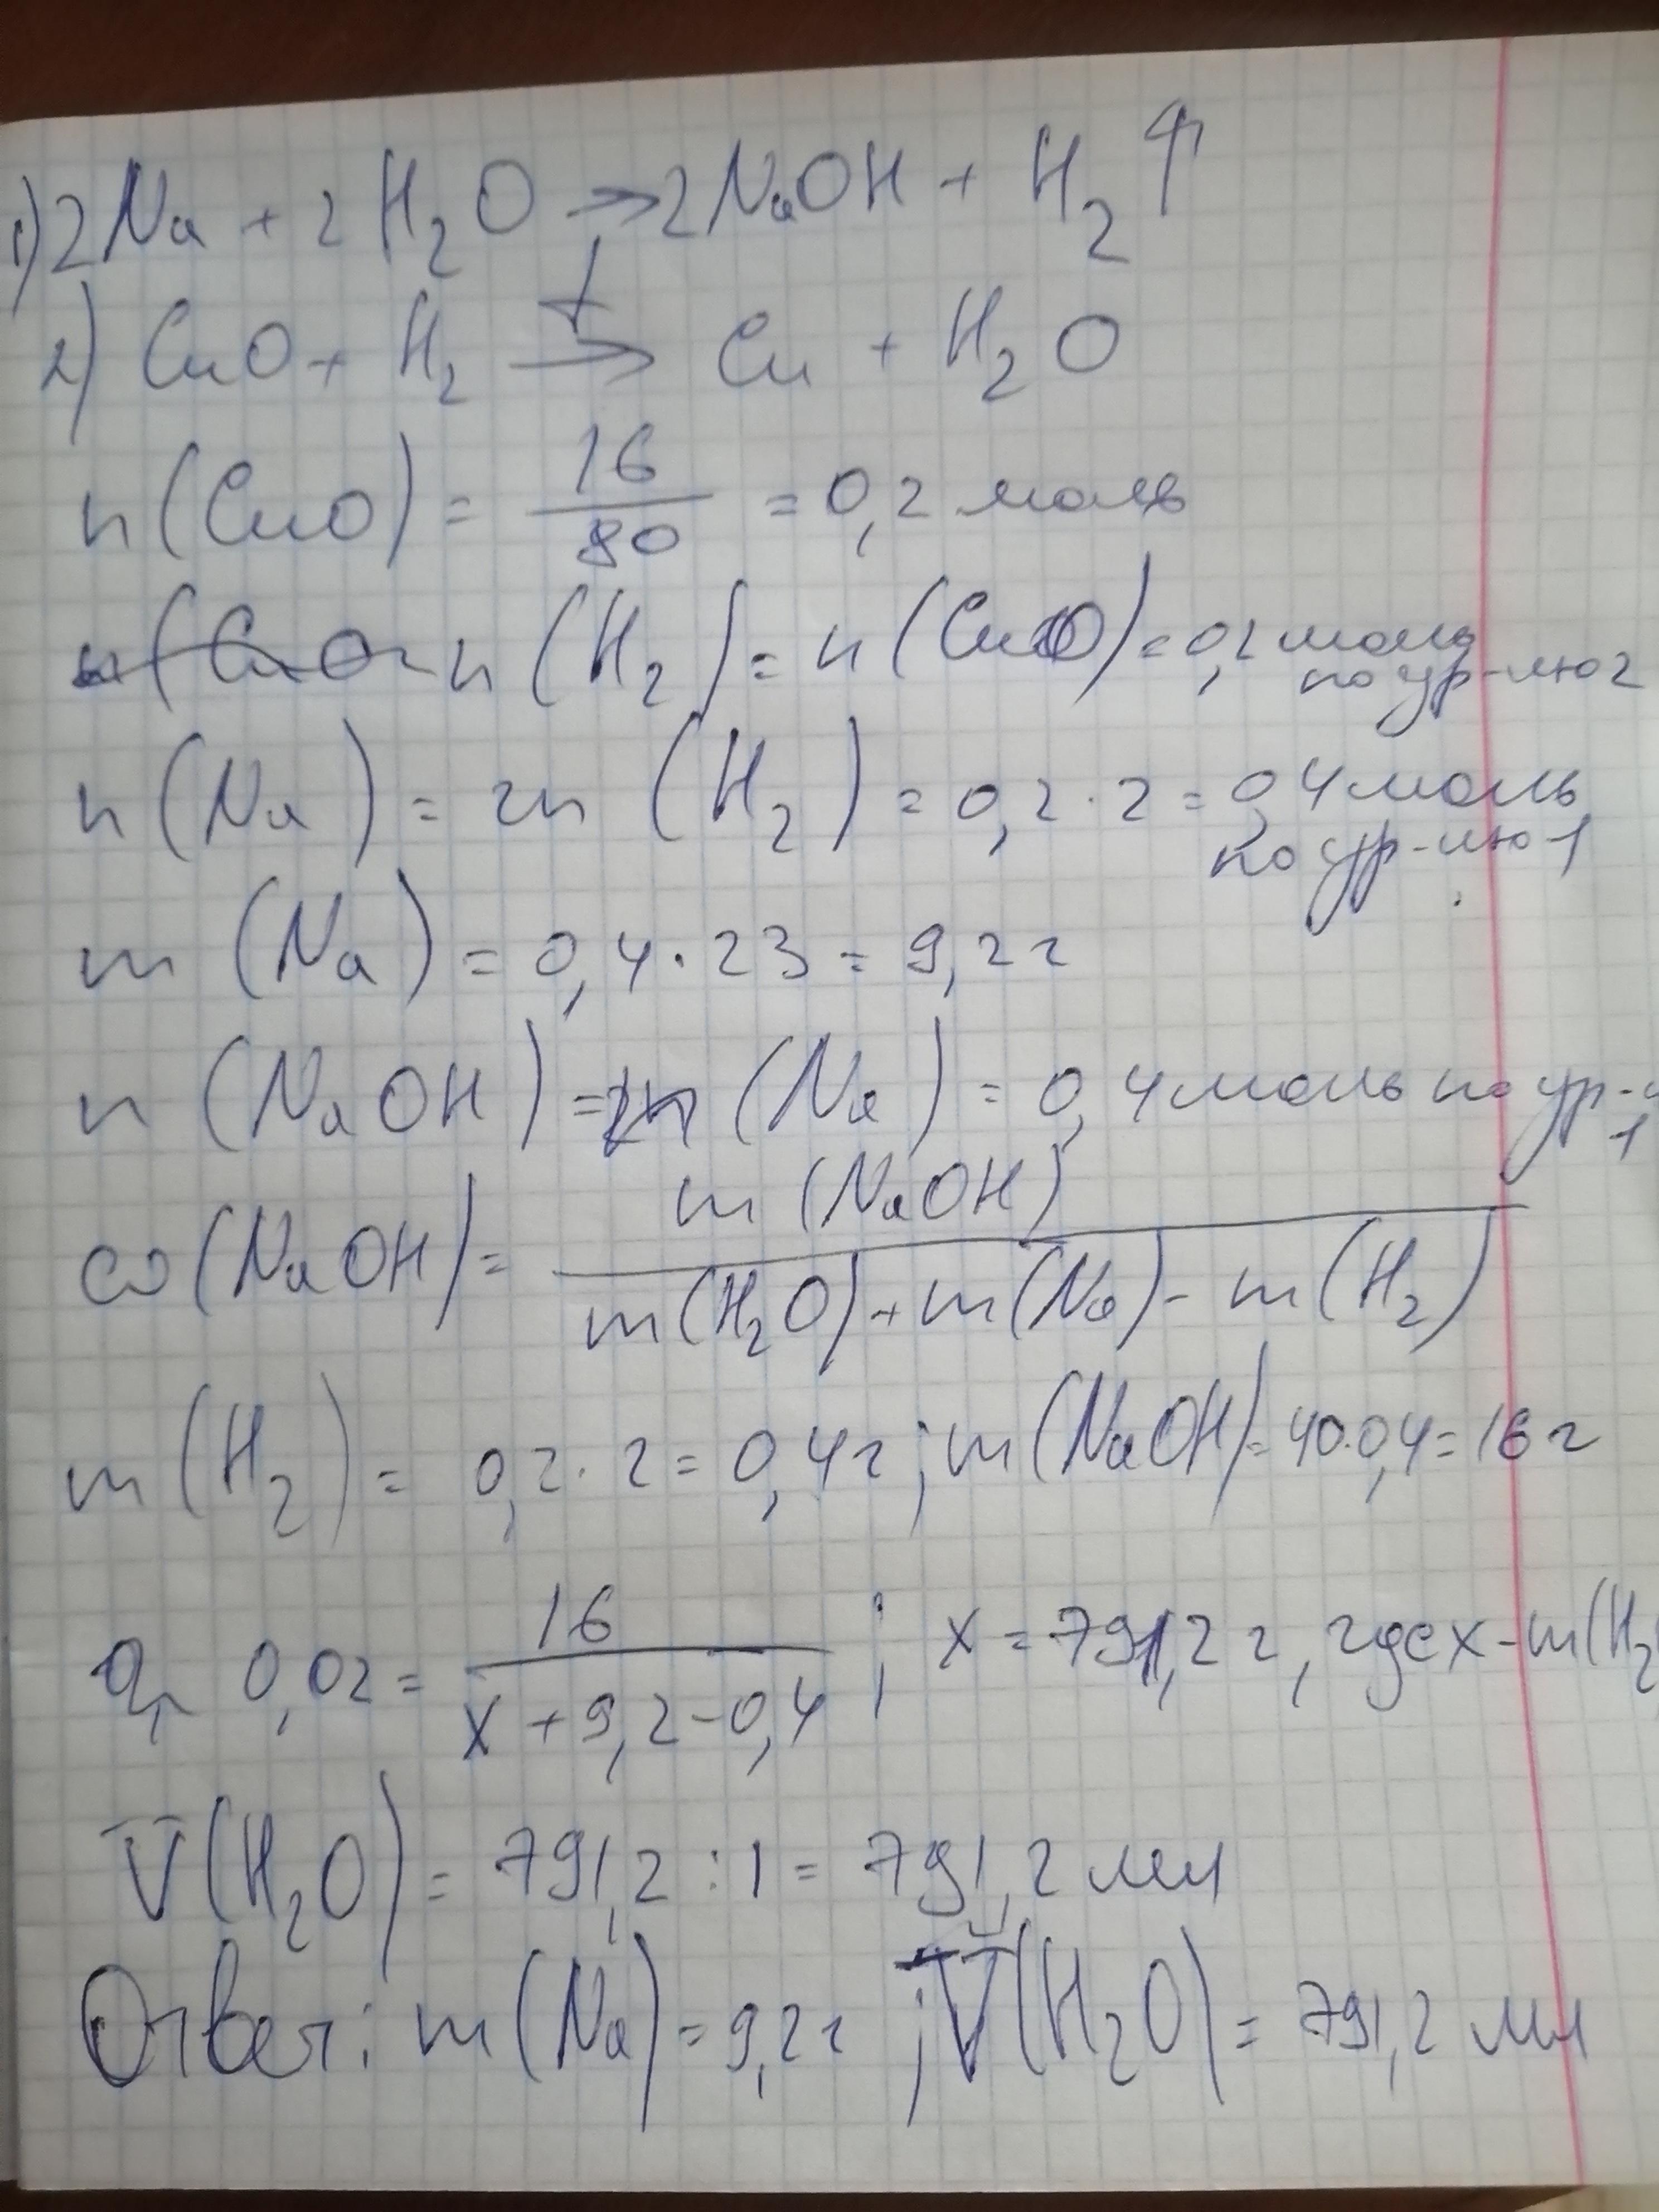 1) 2Na + 2H₂O → 2NaOH + H₂↑
2) CuO + H₂ →ᵗ Cu + H₂O
n(CuO) = 16/80 = 0,2 моль
n(CuO n(H₂) = n(CuO) = 0,2 моль по ур-ию 2
n(Na) = 2n(H₂) = 0,2·2 = 0,4 моль по ур-ию 1
m(Na) = 0,4·23 = 9,2 г
n(NaOH) = n(Na) = 0,4 моль по ур-и 1
ω(NaOH) = m(NaOH)/(m(H₂O) + m(Na) - m(H₂))
m(H₂) = 0,2·2 = 0,4 г; m(NaOH) = 40·0,4 = 16 г
0,02 = 16/(x + 9,2 - 0,4); x = 791,2 г, где x - m(H₂
V(H₂O) = 791,2 : 1 = 791,2 мл
Ответ: m(Na) = 9,2 г; V(H₂O) = 791,2 мл